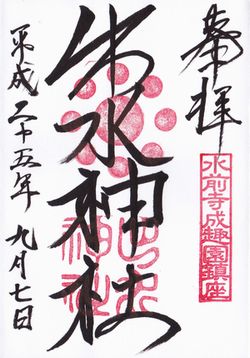 奉拝
水前寺成趣園鎮座
出水神社
平成二十五年九月七日